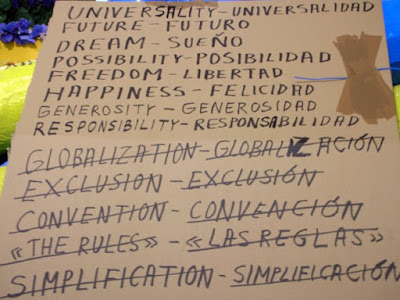 UNIVERSALITY-UNIVERSALIDAD
FUTURE - FUTURO
DREAM - SUEÑO
POSSIBILITY-POSIBILIDAD
FREEDOM - LIBERTAD
HAPPINESS - FELICIDAD
GENEROSITY - GENEROSIDAD
RESPONSIBILITY-RESPONSABILIDAD
GLOBALIZATION-GLOBALIZACIÓN
EXCLUSION - EXCLUSIÓN
CONVENTION - CONVENCIÓN
«THE RULES» - «LAS REGLAS»
SIMPLIFICATION - SIMPLIFICACIÓN